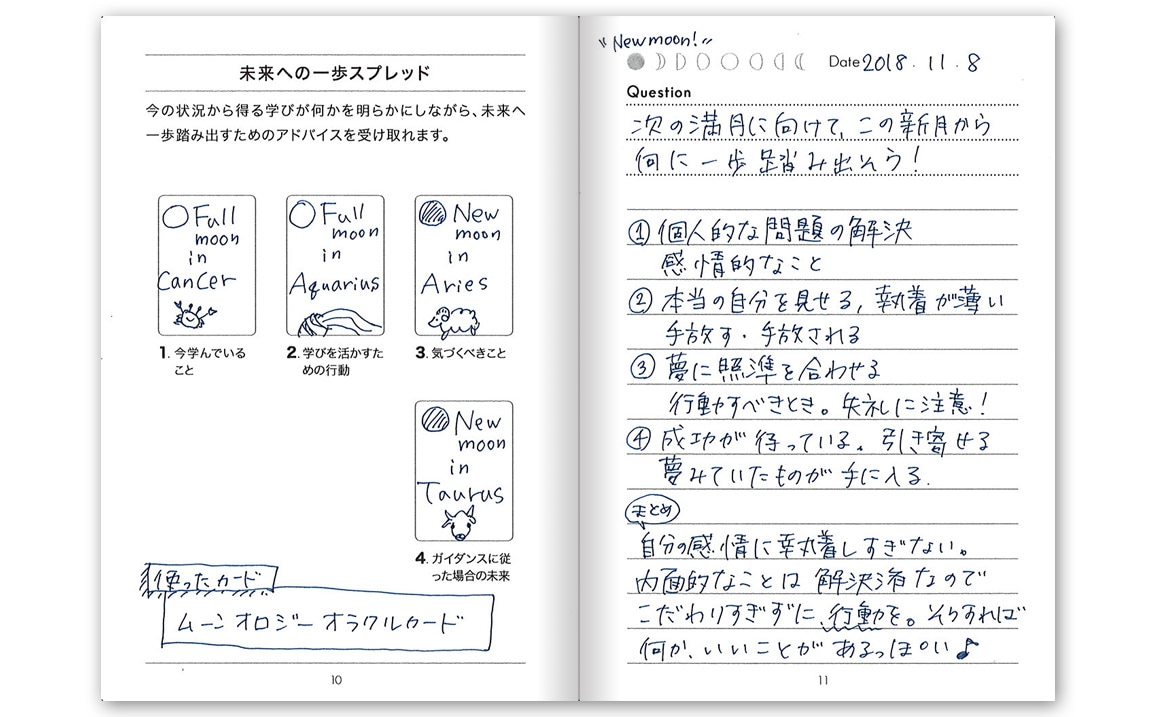 未来への一歩スプレッド
今の状況から得る学びが何かを明らかにしながら、未来へ
一歩踏み出すためのアドバイスを受け取れます。
Full
moon
in
Cancer
1. 今学んでいる
こと
Full
moon
in
Aquarius
2. 学びを活かすた
めの行動
New
moon
in
Aries
3. 気づくべきこと
New
moon
in
Taurus
4. ガイダンスに従
った場合の未来
使ったカード
ムーンオロジー オラクルカード
10
"New moon!"
Date 2018. 11. 8
Question
次の満月に向けて、この新月から
何に一歩踏み出そう!
① 個人的な問題の解決
感情的なこと
② 本当の自分を見せる, 執着が薄い
手放す・手放される
③ 夢に照準を合わせる
行動すべきとき。失礼に注意!
④ 成功が待っている。引き寄せる
夢みていたものが手に入る.
まとめ
自分の感情に執着しすぎない。
内面的なことは解決済なので
こだわりすぎずに、行動を。そうすれば
何か、いいことがあるっぽい♪
11